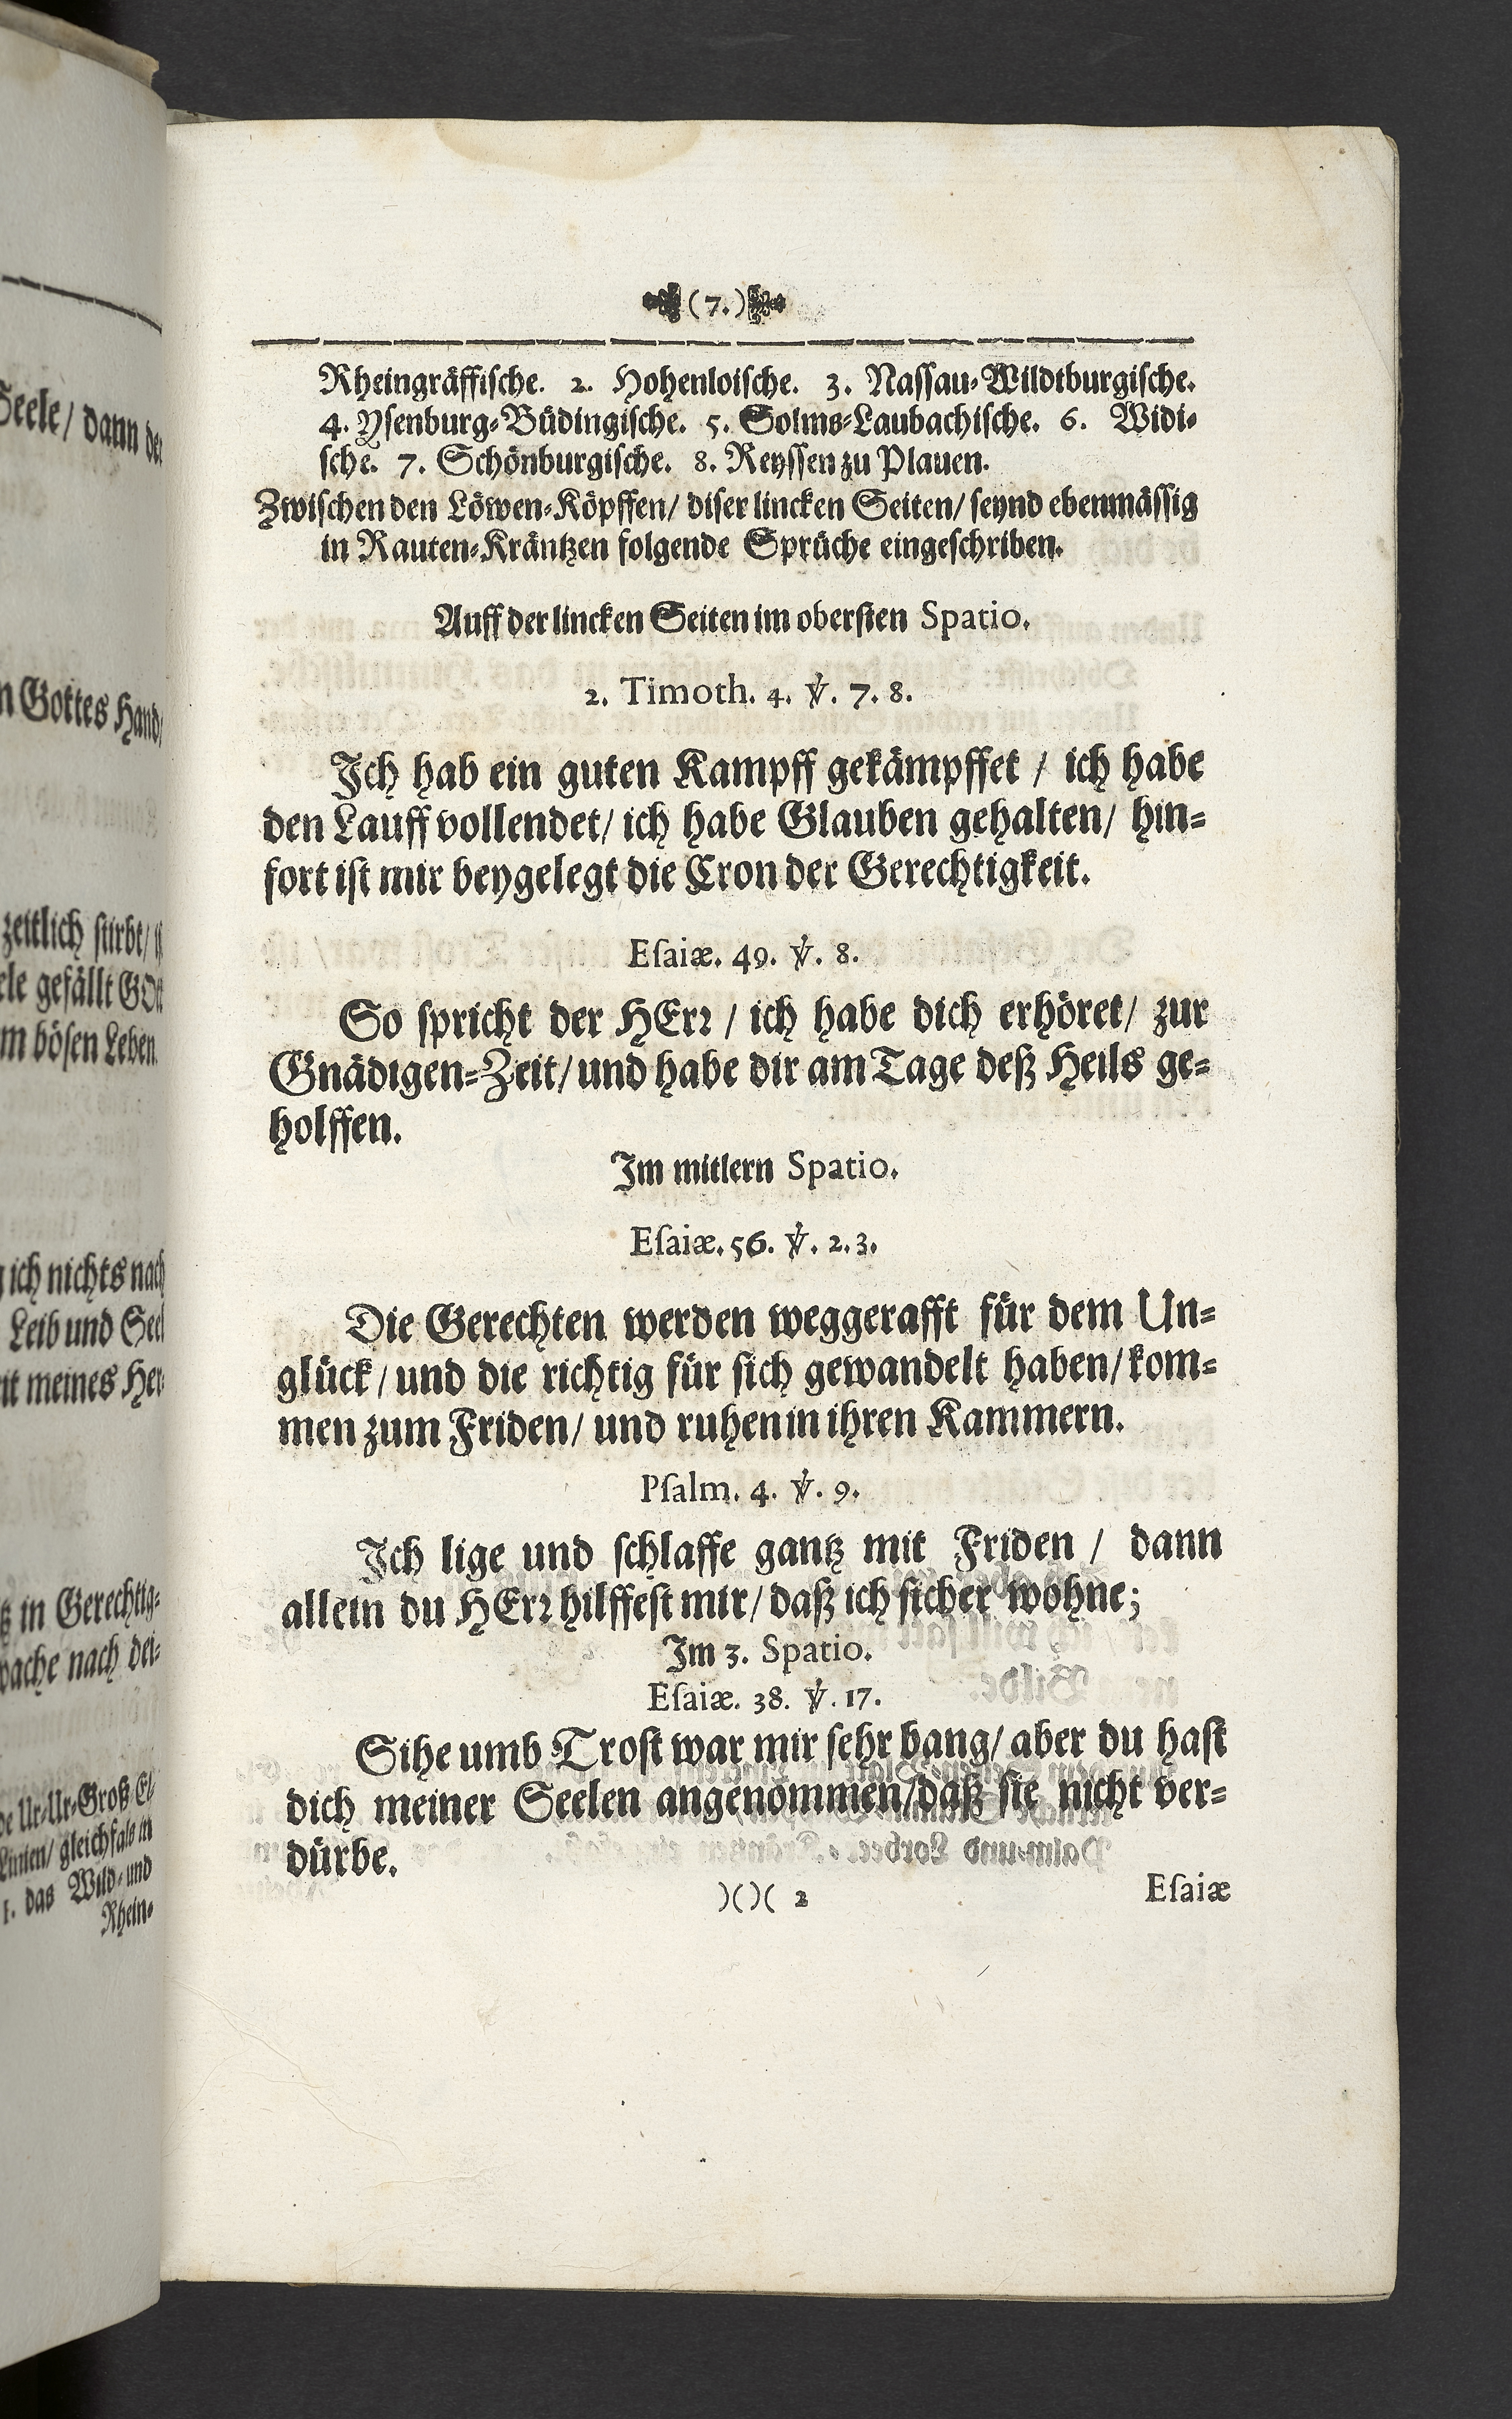 Seele/ dann
n Gottes Hand/
zeitlich stirbt/
ele gefällt GOtt
m bösen Leben.
ich nichts nach
Leib und Seel
it meines Her-
in Gerechtig-
wache nach dei-
Ur-Ur-Groß-El-
Linien/ gleichfals in
1. das Wild- und
Rhein-
(7.)
Rheingräffische. 2. Hohenloische. 3. Nassau-Wildtburgische.
4. Ysenburg-Büdingische. 5. Solms-Laubachische. 6. Widi-
sche. 7. Schönburgische. 8. Reyssen zu Plauen.
Zwischen den Löwen-Köpffen/ diser lincken Seiten/ seynd ebenmässig
in Rauten-Kräntzen folgende Sprüche eingeschriben.
Auff der lincken Seiten im obersten Spatio.
2. Timoth. 4. ℣. 7. 8.
Ich hab ein guten Kampff gekämpffet / ich habe
den Lauff vollendet/ ich habe Glauben gehalten/ hin-
fort ist mir beygelegt die Cron der Gerechtigkeit.
Esaiæ. 49. ℣. 8.
So spricht der HErr / ich habe dich erhöret/ zur
Gnädigen-Zeit/ und habe dir am Tage deß Heils ge-
holffen.
Im mitlern Spatio.
Esaiæ. 56. ℣. 2. 3.
Die Gerechten werden weggerafft für dem Un-
glück / und die richtig für sich gewandelt haben/ kom-
men zum Friden/ und ruhen in ihren Kammern.
Psalm. 4. ℣. 9.
Ich lige und schlaffe gantz mit Friden / dann
allein du HErr hilffest mir/ daß ich sicher wohne;
Im 3. Spatio.
Esaiæ. 38. ℣. 17.
Sihe umb Trost war mir sehr bang/ aber du hast
dich meiner Seelen angenommen/ daß sie nicht ver-
dürbe.
)( )( 2 Esaiæ